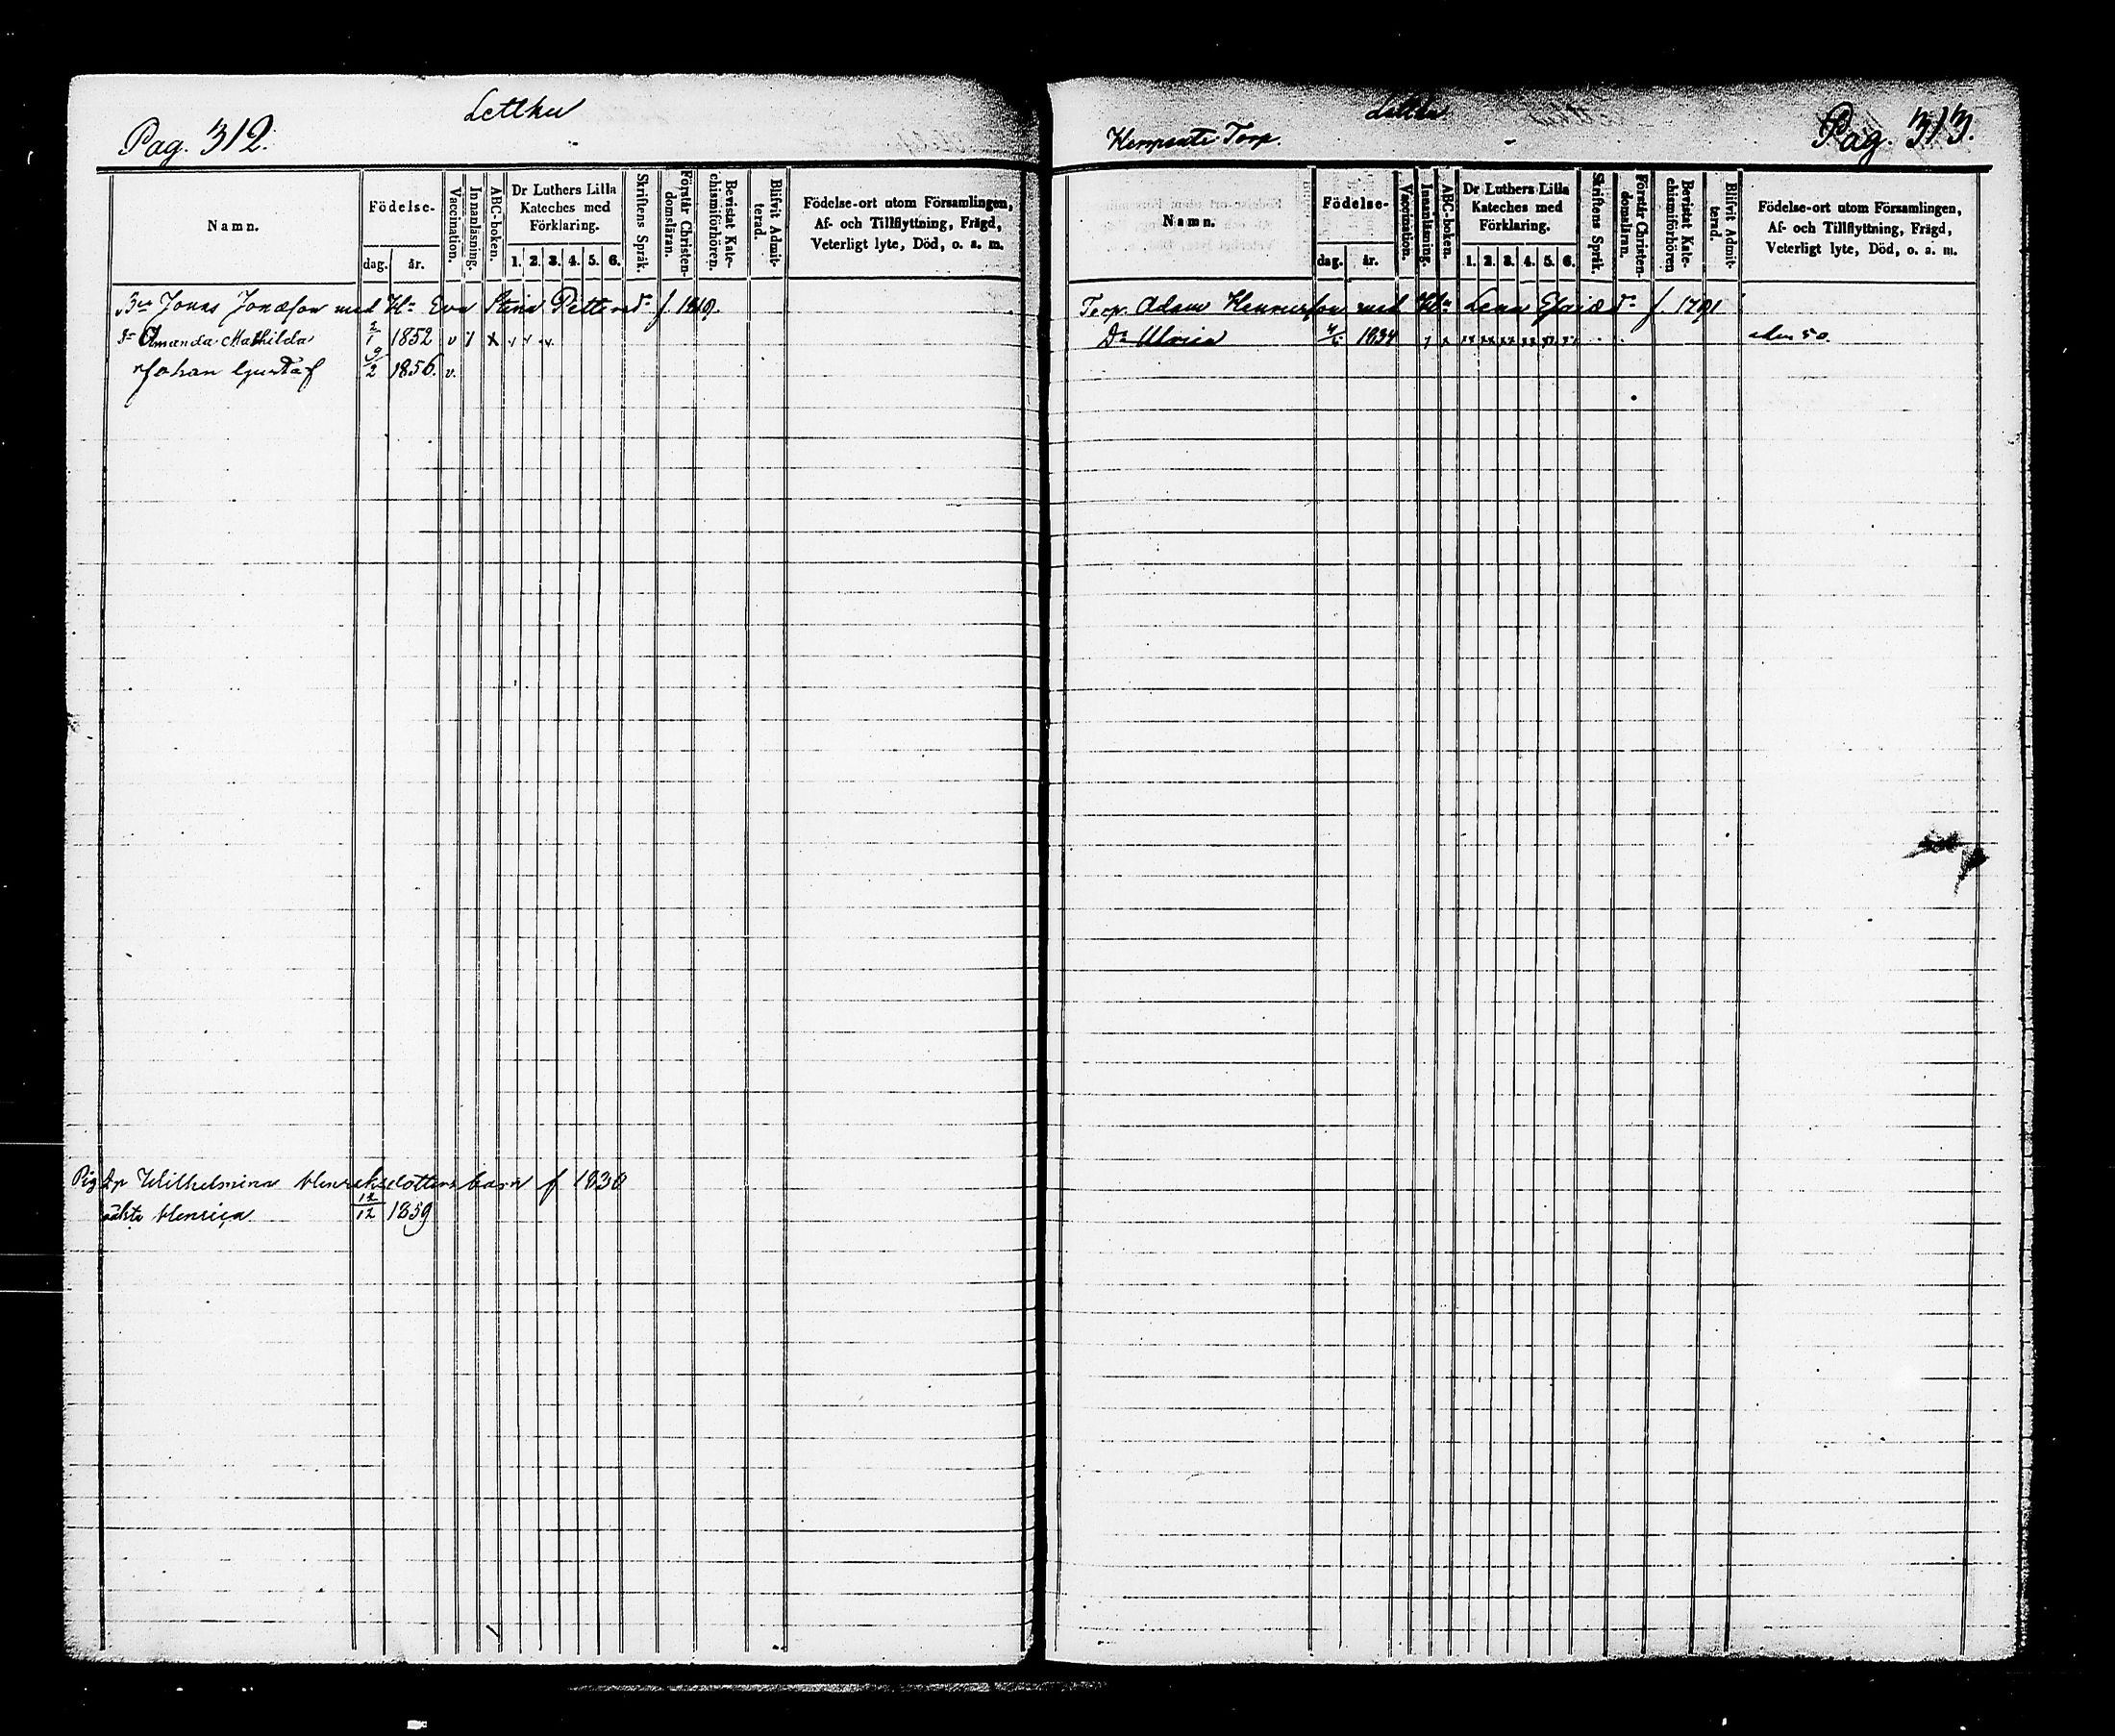 Pag. 312.
Letthu
Namn.
Födelse-
dag.
år.
Vaccination.
Innanläsning.
ABC-boken.
Dr Luthers Lilla
Kateches med
Förklaring.
1. 2. 3. 4. 5. 6.
Skriftens Språk.
Förstår Christen-
domsläran.
Bevistat Kate-
chismiförhören.
Blifvit Admit-
terad.
Födelse-ort utom Församlingen,
Af- och Tillflyttning, Frägd,
Veterligt lyte, Död, o. s. m.
Jonas Jonasson med Hu Eva Stina Petters dr f.
Amanda Mathilda 2/1 1852 v
Johan Gustaf 9/2 1856. v.
Wilhelmina barn f 1830
Henrica 12/12 1859
Letthu
Torp.
Pag. 313.
Namn.
Födelse-
dag.
år.
Vaccination.
Innanläsning.
ABC-boken.
Dr Luthers Lilla
Kateches med
Förklaring.
1. 2. 3. 4. 5. 6.
Skriftens Språk.
Förstår Christen-
domsläran.
Bevistat Kate-
chismiförhören
Blifvit Admit-
terad.
Födelse-ort utom Församlingen,
Af- och Tillflyttning, Frägd,
Veterligt lyte, Död, o. s. m.
Torp. Adam Henricsson med Hu Lena Esaiæ dr f. 1791
Dr Ulrica 1834 50